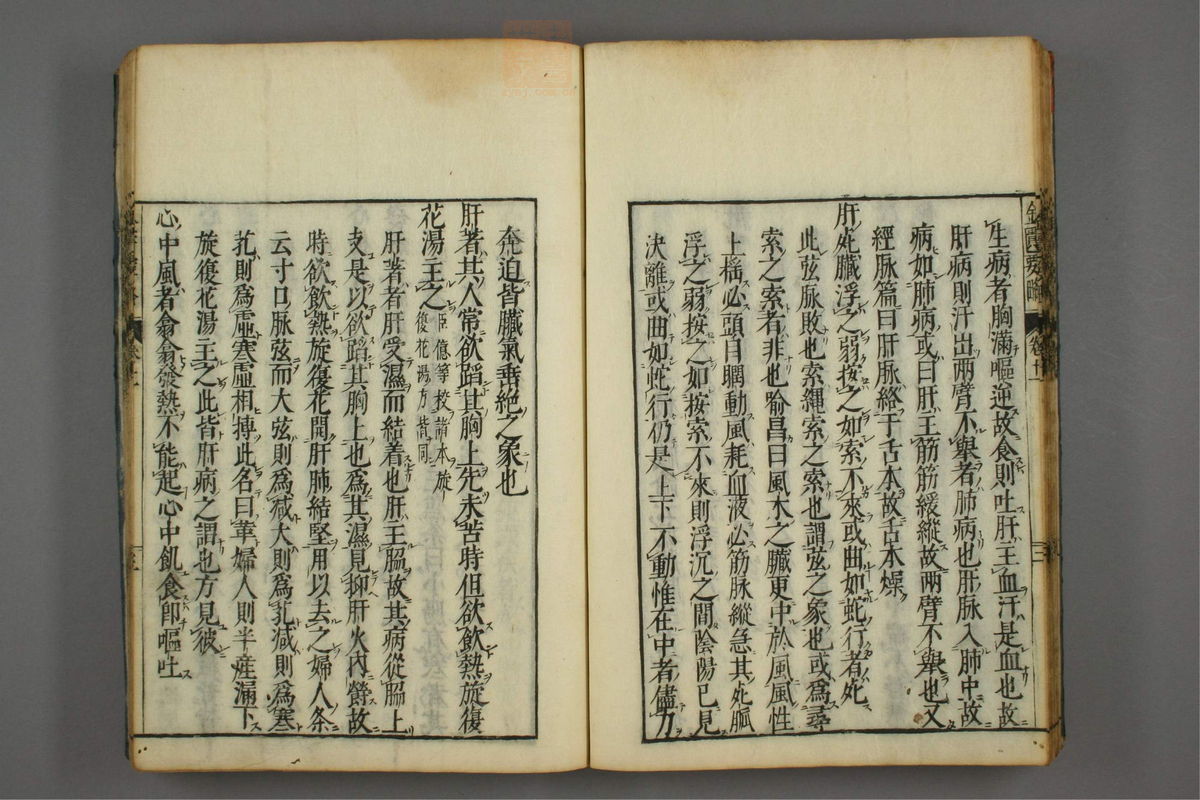 生病者胸滿嘔逆故食則吐肝王血汗是血也故
肝病則汗出兩臂不舉者肺病也肝脉入肺中故
病如肺病或曰肝王筋筋緩縱故兩臂不舉也又
經脉篇曰肝脉絡于舌本故舌本燥
肝死臟浮之弱按之如索不來或曲如蛇行者死
此弦脉敗也索繩索之索也謂弦之象也或為尋
索之索者非也喻昌曰風木之臟更中於風風性
上搖必頭目瞤動風耗血液必筋脉縱急其死脈
浮之弱按之如按索不來則浮沉之間陰陽已見
決離或曲如蛇行仍是上下不動惟在中者儘力
奔迫皆臟氣垂絶之象也
肝著其人常欲蹈其胸上先未苦時但欲飲熱旋復
花湯主之臣億等校諸本旋復花湯方皆同
肝著者肝受濕而結着也肝王脇故其病從脇上
支是以欲蹈其胸上也為其濕見抑肝火內鬱故
時欲飲熱旋復花開肝肺結堅用以去之婦人条
云寸口脉弦而大弦則為減大則為芤減則為寒
芤則為虛寒虛相搏此名曰革婦人則半産漏下
旋復花湯主之此皆肝病之謂也方見彼
心中風者翕翕發熱不能起心中飢食即嘔吐